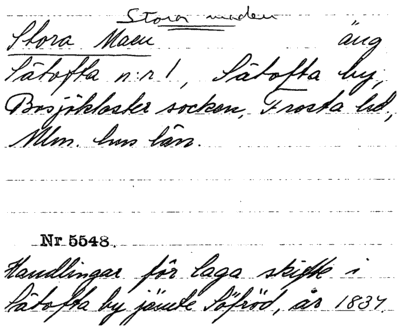 Stora maden
Stora Maen äng
Sätofta n:r 1, Sätofta by,
Bosjökloster socken, Frosta hd,
Mlm. hus län.
Nr 5548.
Handlingar för laga skifte i
Sätofta by jämte Söfröd, år 1837.